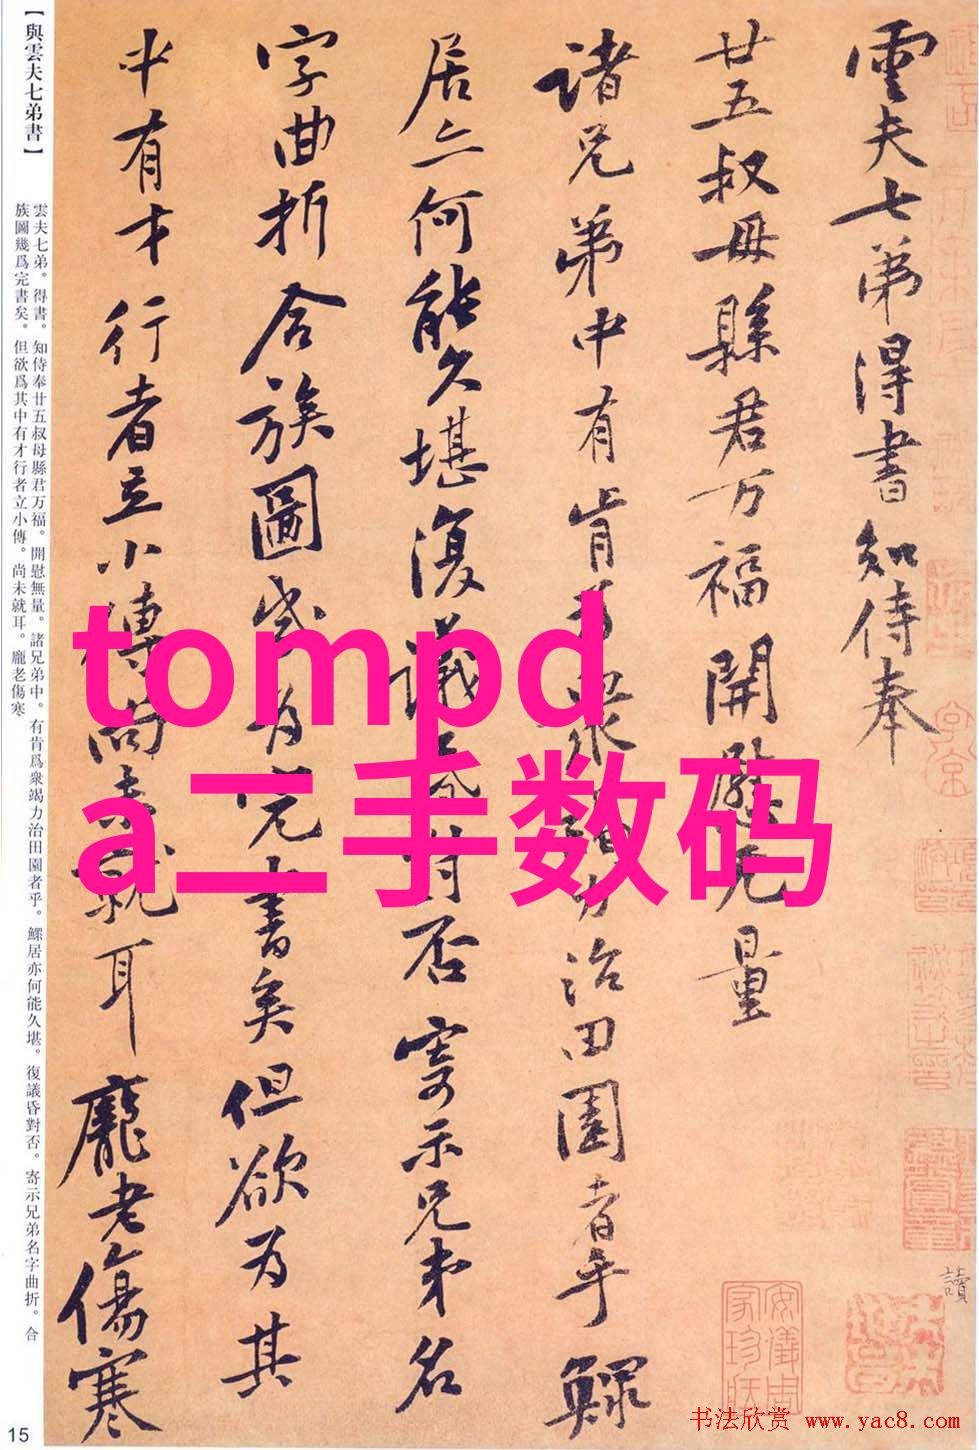 【與雲夫七弟書】
雲夫七弟。得書。知侍奉廿五叔母縣君万福。開慰無量。諸兄弟中。有肯爲衆竭力治田園者乎。鰥居亦何能久堪。復議昏對否。寄示兄弟名字曲折。合
族圖幾爲完書矣。但欲爲其中有才行者立小傳。尚未就耳。龐老傷寒
15
雲夫七弟得書知侍奉
廿五叔母縣君万福開慰無量
諸兄弟中有肯為衆竭力治田園者乎鰥
居亦何能久堪復議昏對否寄示兄弟名
字曲折合族圖幾為完書矣但欲為其
中有才行者立小傳尚未就耳龐老傷寒
tompd
a二手数码
讀
安儀周家珍藏
书法欣赏 www.yac8.com